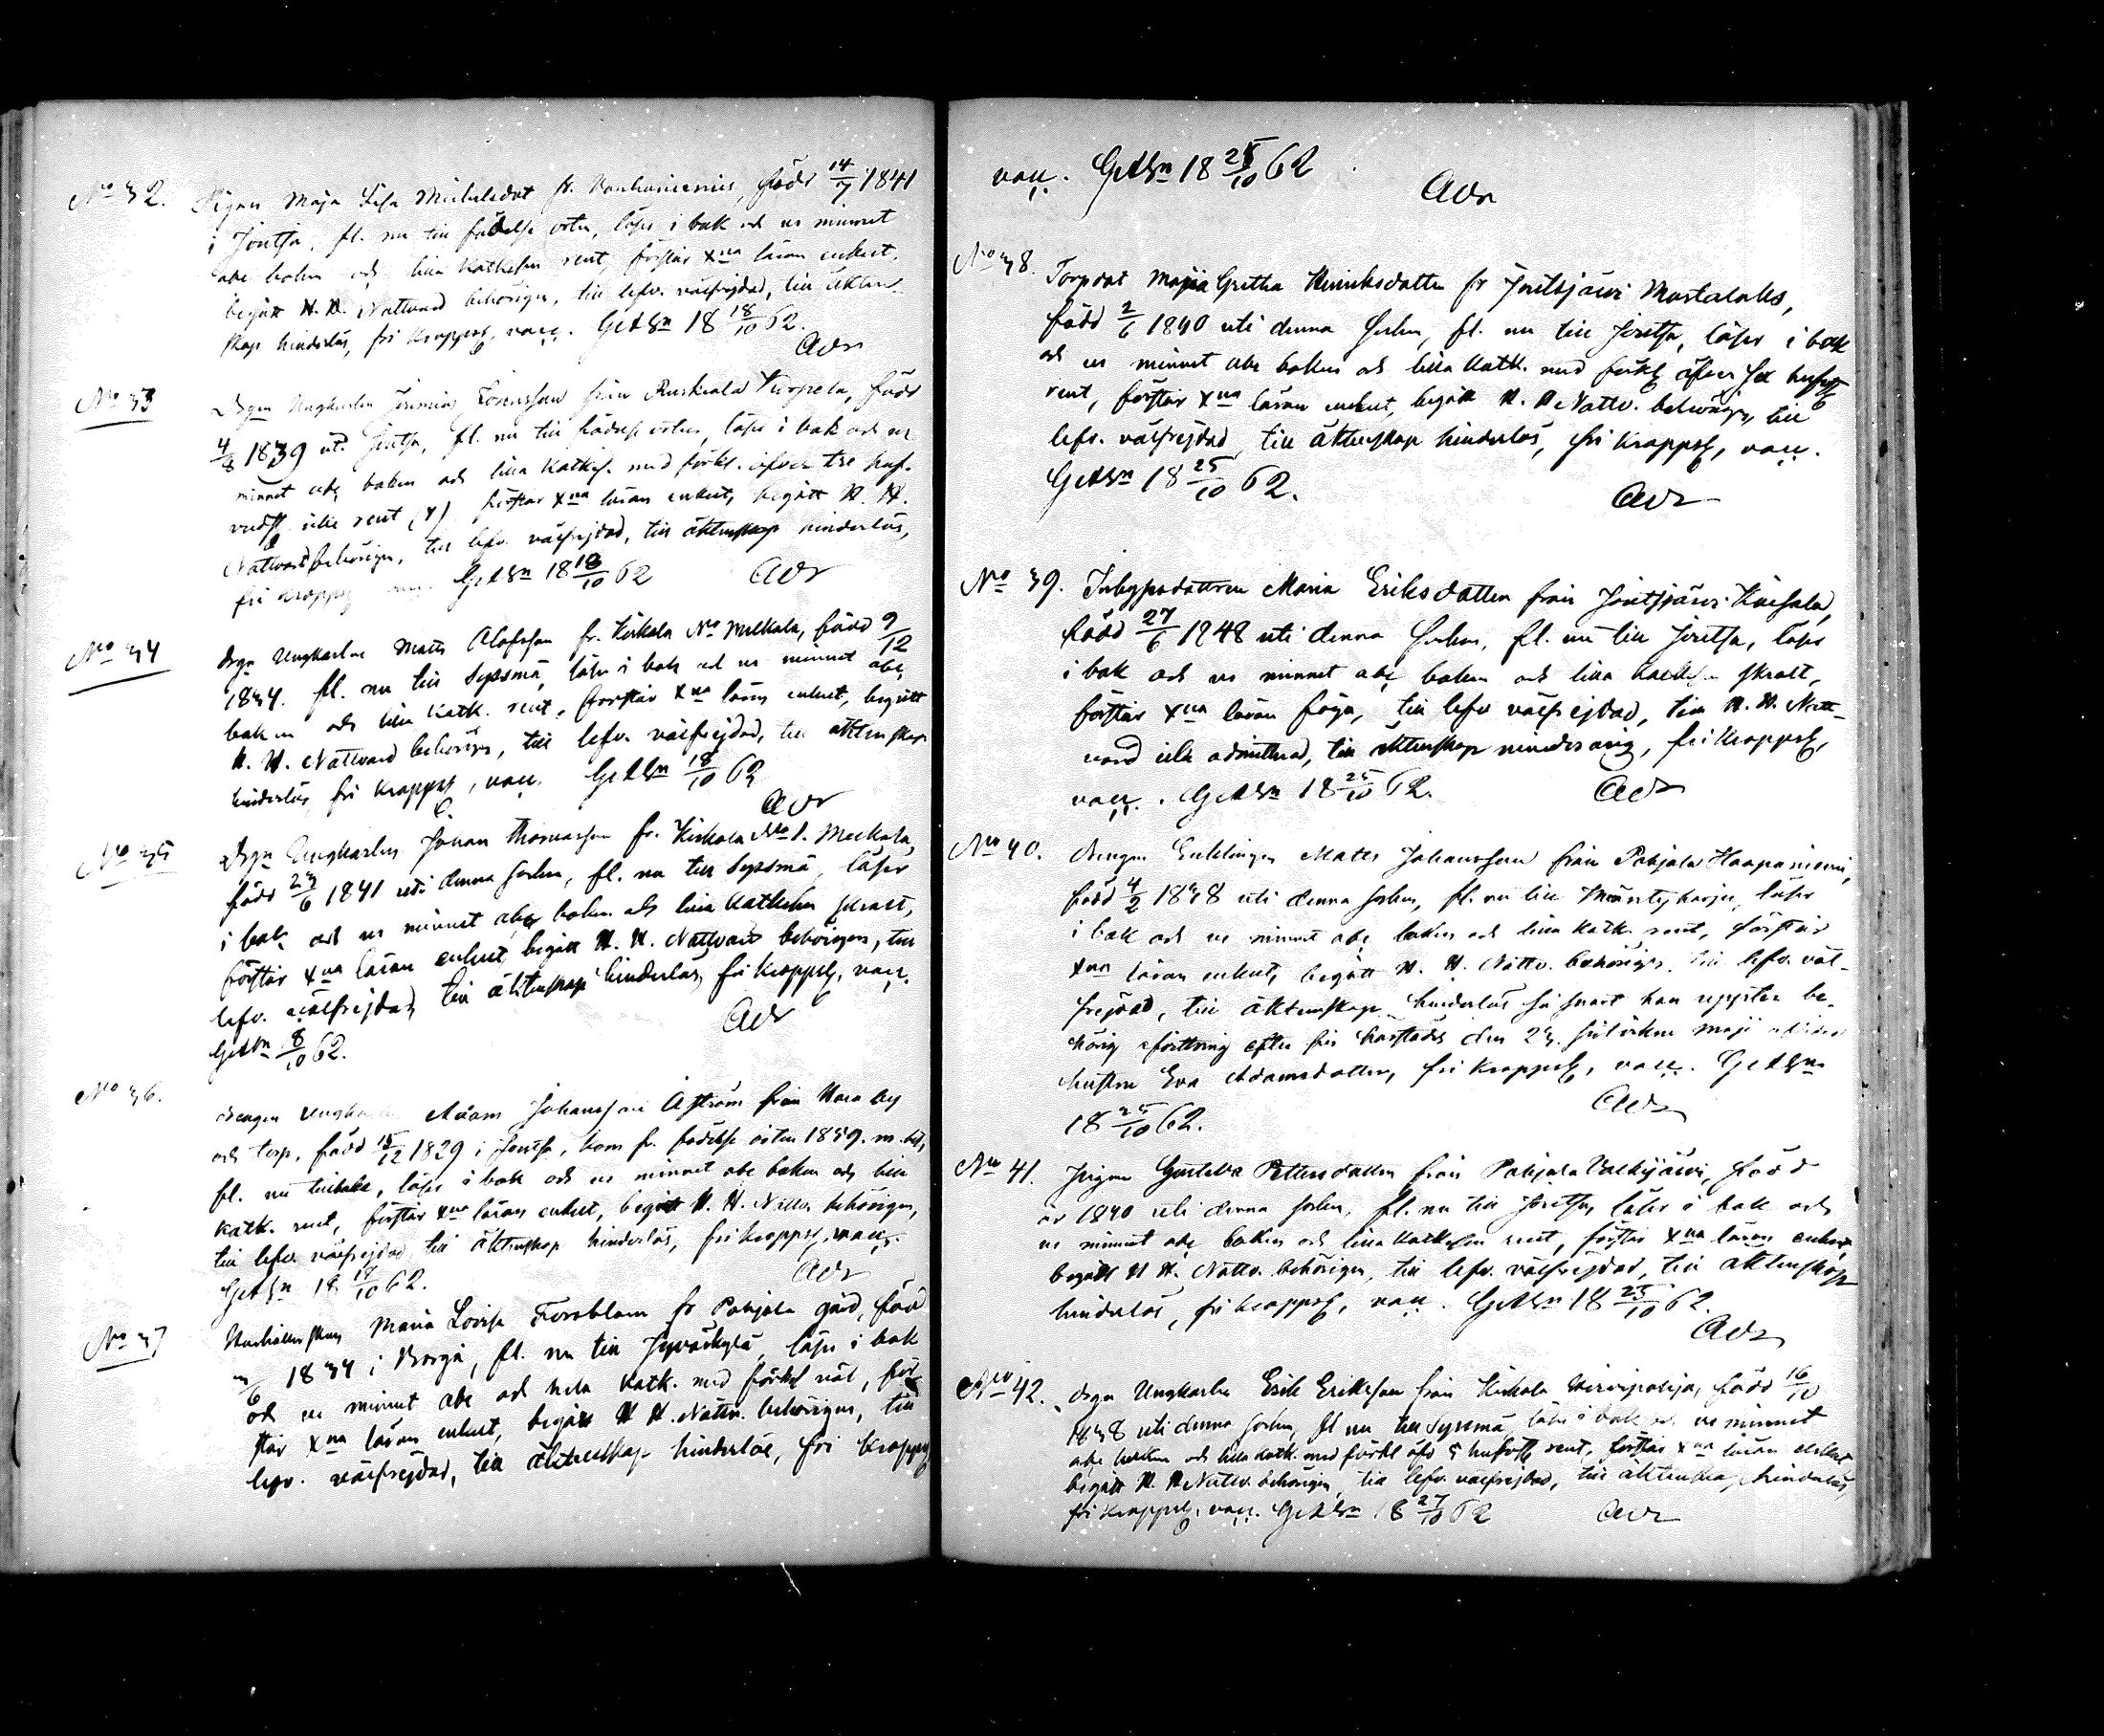 No 32. Pigan Maja Lisa Michelsdot fr. född 14/7 1841
i Joutsa, fl. nu till födelse orten, läser i bok och ur minnet
abc boken och lilla Kathesen rent, förstår xna läran enkelt,
begått H. H. Nattvard behörigen, till lefv. välfrejdad, till äkten-
skap hinderlös, fri kroppsl, vacc. 18 18/10 62.
Adr
No 33 Drgn Ungkarlen Jeremias från Ruskiala född
4/8 1839 uti Joutsa, fl. nu till födelse orten, läser i bok och ur
minnet abc boken och lilla Katkes. med förkl. öfver tre huf-
vudst icke rent (?) förstår xna läran enkelt, begått H. H.
Nattvard behörigen, till lefv. välfrejdad, till äktenskap hinderlös,
fri kroppsl 18 18/10 62 Adr
No 34 Drgn Ungkarlen Matts Olofsson fr. Kirkola No Mellola, född 9/12
1834. fl. nu till Sysmä, läser i bok och ur minnet abc
boken och lilla Katk. rent, förstår xna läran enkelt, begått
H. H. Nattvard behörigen, till lefv. välfrejdad, till äktenskap
hinderlös, fri kroppsl, vacc. 18/10 62
Adr
No 35 Drgn Ungkarlen Johan Thomasson fr. Kirkola No 1.
född 23/6 1841 uti denna sochn, fl. nu till Sysmä, läser
i bok och ur minnet abc boken och lilla Kathesen skralt,
förstår xna läran enkelt, begått H. H. Nattvard behörigen, till
lefv. välfrejdad, till äktenskap hinderlös, fri kroppsl, vacc.
Adr
18/10 62.
No 36. Drengen Adam Johansson Åström från Hara by
och torp, född 15/12 1829 i Joutsa, kom fr. födelse orten 1859. m. bet,
fl. nu tillbaka, läser i bok och ur minnet abc boken och lilla
Katk. rent, förstår xna läran enkelt, begått H. H. Nattv. behörigen,
till lefv. välfrejdad, till äktenskap hinderlös, fri kroppsl, vacc.
18 18/10 62. Adr
No 37 Hushållerskan Maria Lovisa Forsblom fr Pohjola gård, född
/6 1834 i Borgå, fl. nu till Jyväskylä, läser i bok
och ur minnet abc och hela Katk. med förkl väl, för
står xna läran enkelt, begått H H. Nattv. behörigen, till
lefv. välfrejdad, till äktenskap hinderlös, fri kroppsl
vacc. 18 25/10 62
Adr
No 38. Torpdot Maja Gretha Henriksdotter fr Joutsjärvi
född 2/6 1840 uti denna sochn, fl. nu till Joutsa, läser i bok
och ur minnet abc boken och lilla Katk. med förkl öfver hufvst
rent, förstår xna läran enkelt, begått H. H Nattv. behörigen, till
lefv. välfrejdad, till äktenskap hinderlös, fri kroppsl, vacc.
18 25/10 62.
Adr
No 39. Inhysesdottren Maria Eriksdotter från Joutsjärvi
född 27/6 1848 uti denna sochn, fl. nu till Joutsa, läser
i bok och ur minnet abc boken och lilla skralt,
förstår xna läran föga, till lefv välfrejdad, till H. H. Natt-
vard icke admitterad, till äktenskap minderårig, fri kroppsl,
vacc. 18 25/10 62. Adr
No 40. Drengen Enklingen Matts Johansson från Pohjola Haapaniemi,
född 4/2 1838 uti denna sochn, fl. nu till Mäntyharju, läser
i bok och ur minnet abc boken och lilla Katk. rent, förstår
xna läran enkelt, begått H. H. Nattv. behörigen, till lefv. väl-
frejdad, till äktenskap hinderlös så snart han uppter be-
hörig afvittring efter sin den 23. maji aflidna
hustru Eva Adamsdotter, fri kroppsl, vacc.
Adr
18 25/10 62.
No 41. Pigan Gustava Pettersdotter från Pohjola Valkjärvi, född
år 1840 uti denna sochn, fl. nu till Joutsa, läser i bok och
ur minnet abc boken och lilla Kathesen rent, förstår xna läran enkelt,
begått H H. Nattv. behörigen, till lefv. välfrejdad, till äktenskap
hinderlös, fri kroppsl, vacc. 18 25/10 62.
Adr
No 42. Drgn Ungkarlen Erik Eriksson från Kirkola född 16/10
1838 uti denna sochn, fl nu till Sysmä, läser i bok och ur minnet
abc boken och lilla Katk. med förkl öfv 5 hufvst rent, förstår xna läran enkelt
begått H. H Nattv. behörigen, till lefv. välfrejdad, till äktenskap hinderlös,
fri kroppsl, vacc. 18 27/10 62 Adr